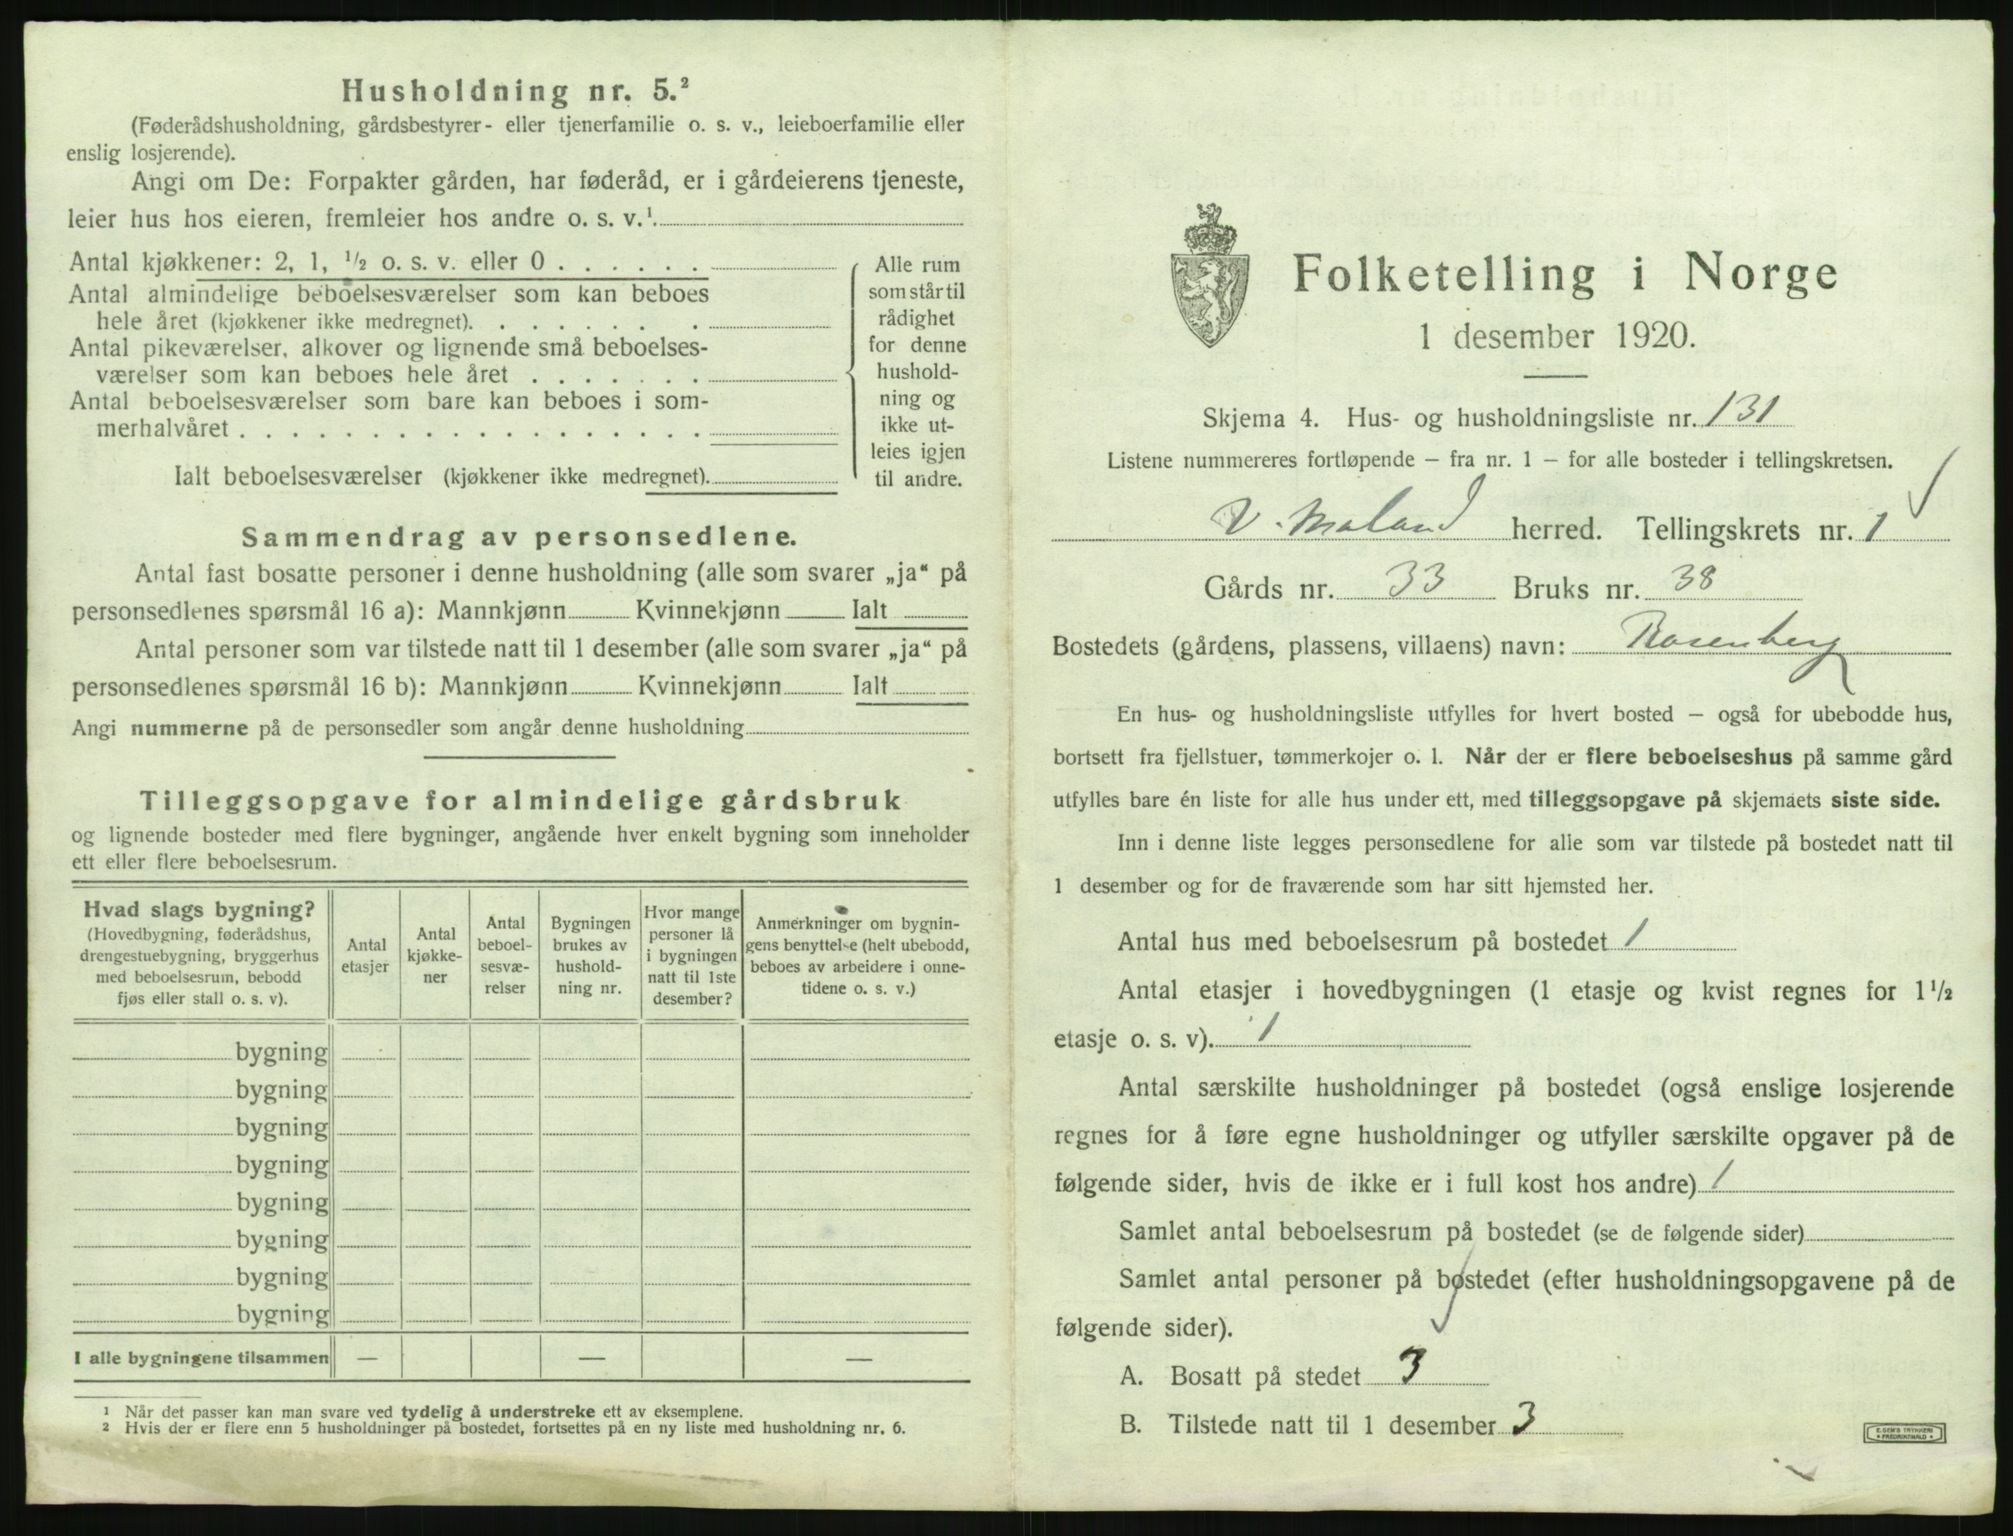 Husholdning nr. 5.²
(Føderådshusholdning, gårdsbestyrer- eller tjenerfamilie o. s. v., leieboerfamilie eller
enslig losjerende).
Angi om De: Forpakter gården, har føderåd, er i gårdeierens tjeneste,
leier hus hos eieren, fremleier hos andre o. s. v.¹
Antal kjøkkener: 2, 1, ½ o. s. v. eller 0 . . . . . .
Antal almindelige beboelsesværelser som kan beboes
hele året (kjøkkener ikke medregnet). . . . . . . .
Antal pikeværelser, alkover og lignende små beboelses-
værelser som kan beboes hele året . . . . . . .
Antal beboelsesværelser som bare kan beboes i som-
merhalvåret . . . . . . . . . . . . . . . . . .
Ialt beboelsesværelser (kjøkkener ikke medregnet).
Alle rum
som står til
rådighet
for denne
hushold-
ning og
ikke ut-
leies igjen
til andre.
Sammendrag av personsedlene.
Antal fast bosatte personer i denne husholdning (alle som svarer „ja“ på
personsedlenes spørsmål 16 a): Mannkjønn Kvinnekjønn Ialt
Antal personer som var tilstede natt til 1 desember (alle som svarer „ja“ på
personsedlenes spørsmål 16 b): Mannkjønn Kvinnekjønn Ialt
Angi nummerne på de personsedler som angår denne husholdning
Tilleggsopgave for almindelige gårdsbruk
og lignende bosteder med flere bygninger, angående hver enkelt bygning som inneholder
ett eller flere beboelsesrum.
Hvad slags bygning?
(Hovedbygning, føderådshus,
drengestuebygning, bryggerhus
med beboelsesrum, bebodd
fjøs eller stall o. s. v).
Antal
etasjer
Antal
kjøkke-
ner
Antal
beboel-
sesvæ-
relser
Bygningen
brukes av
hushold-
ning nr.
Hvor mange
personer lå
i bygningen
natt til 1ste
desember?
Anmerkninger om bygnin-
gens benyttelse (helt ubebodd,
beboes av arbeidere i onne-
tidene o. s. v.)
bygning
bygning
bygning
bygning
bygning
bygning
bygning
bygning
I alle bygningene tilsammen — — —
¹ Når det passer kan man svare ved tydelig å understreke ett av eksemplene.
² Hvis der er flere enn 5 husholdninger på bostedet, fortsettes på en ny liste med husholdning nr. 6.
Folketelling i Norge
1 desember 1920.
Skjema 4. Hus- og husholdningsliste nr. 131
Listene nummereres fortløpende — fra nr. 1 — for alle bosteder i tellingskretsen.
V. Moland herred. Tellingskrets nr. 1
Gårds nr. 33 Bruks nr. 38
Bostedets (gårdens, plassens, villaens) navn: Rosenberg
En hus- og husholdningsliste utfylles for hvert bosted — også for ubebodde hus,
bortsett fra fjellstuer, tømmerkojer o. l. Når der er flere beboelseshus på samme gård
utfylles bare én liste for alle hus under ett, med tilleggsopgave på skjemaets siste side.
Inn i denne liste legges personsedlene for alle som var tilstede på bostedet natt til
1 desember og for de fraværende som har sitt hjemsted her.
Antal hus med beboelsesrum på bostedet 1
Antal etasjer i hovedbygningen (1 etasje og kvist regnes for 1½
etasje o. s. v). 1
Antal særskilte husholdninger på bostedet (også enslige losjerende
regnes for å føre egne husholdninger og utfyller særskilte opgaver på de
følgende sider, hvis de ikke er i full kost hos andre) 1
Samlet antal beboelsesrum på bostedet (se de følgende sider)
Samlet antal personer på bostedet (efter husholdningsopgavene på de
følgende sider).
A. Bosatt på stedet 3
B. Tilstede natt til 1 desember 3
E. SEM'S TRYKKERI
FREDRIKSHALD